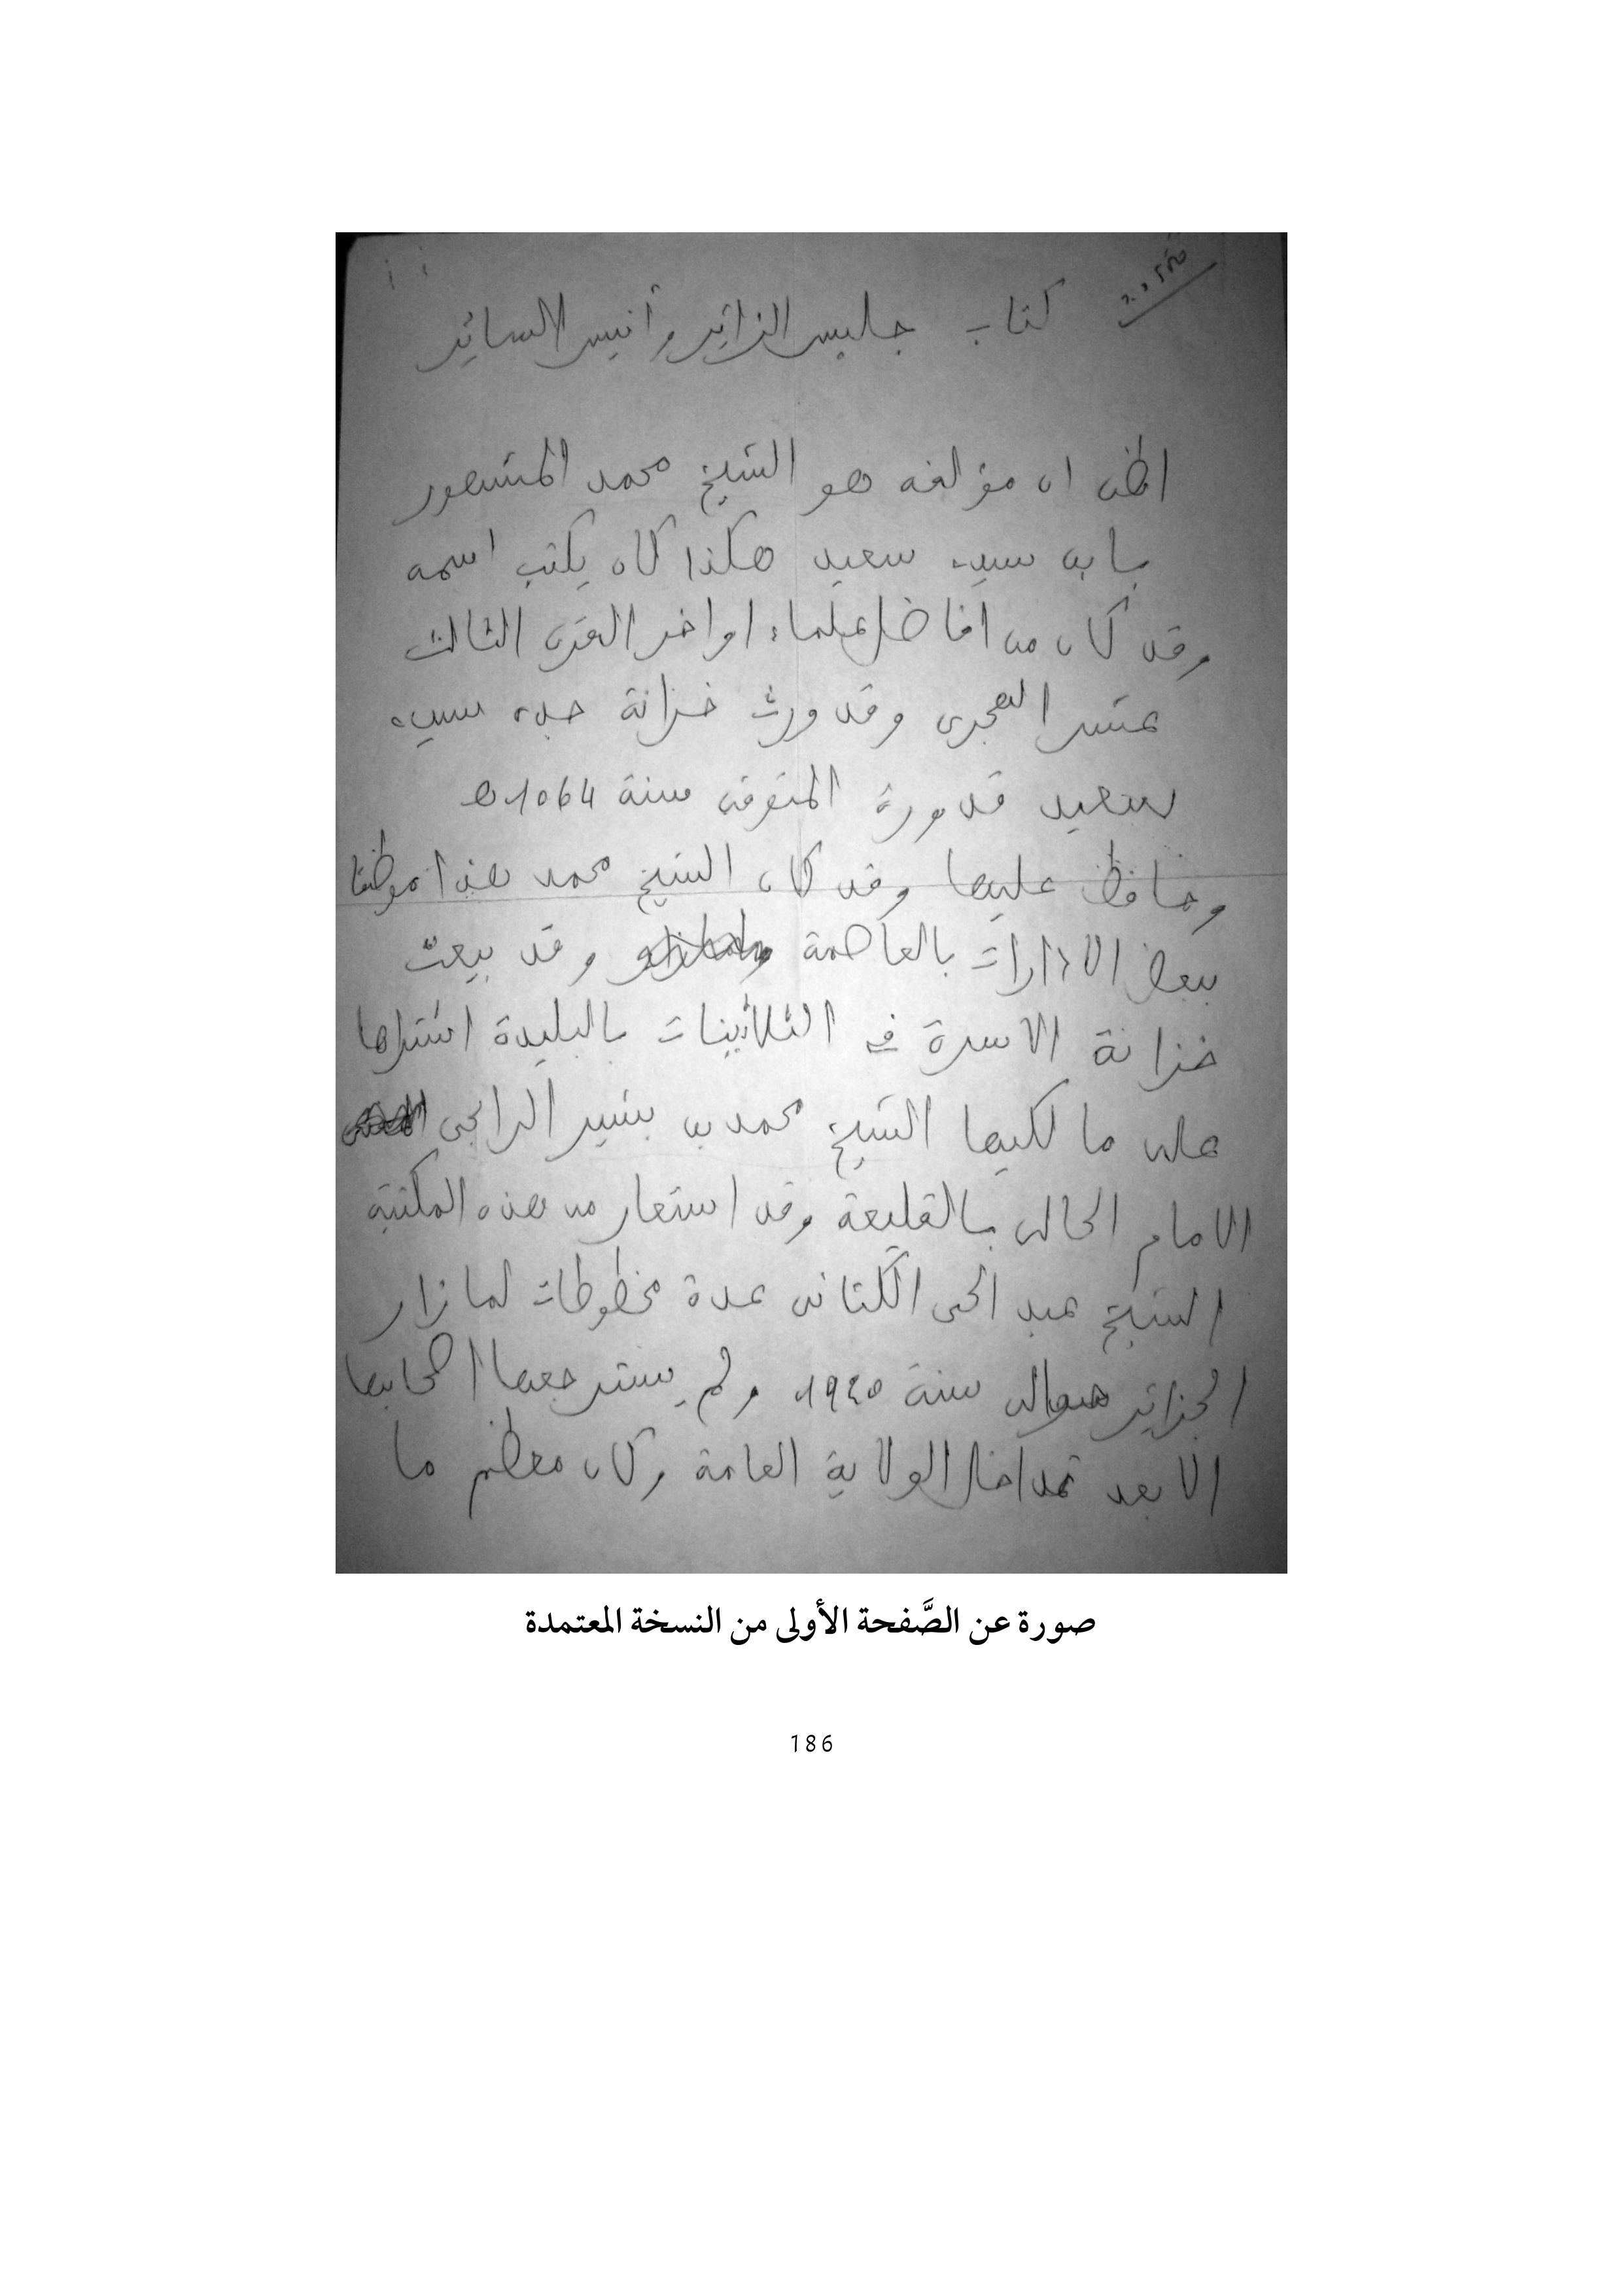 كتاب جليس الزائر وأنيس السائر
اظن ان مؤلفه هو الشيخ محمد المشهور
بابن سيدي سعيد هكذا كان يكتب اسمه
وقد كان من افاضل علماء اواخر القرن الثالث
عشر الهجري وقد ورث خزانة جده سيدي
سعيد قدورة المتوفى سنة 1064 ه
وحافظ عليها وقد كان الشيخ محمد هذا موظفا
ببعض الادارات بالعاصمة وقد بيعت
خزانة الاسرة في الثلاثينات بالبليدة اشتراها
على مالكيها الشيخ محمد بن بشير الرابحي
الامام الحالى بالقليعة وقد استعار من هذه المكتبة
الشيخ عبد الحى الكتانى عدة مخطوطات لما زار
الجزائر حوالى سنة ١٩٤٥ ولم يسترجعها اصحابها
الا بعد تداخل الولاية العامة وكان معظم ما
صورة عن الصَّفحة الأولى من النسخة المعتمدة
186